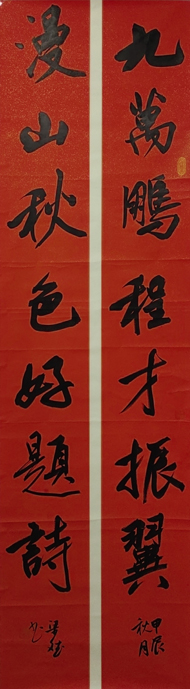 九萬鵬程才振翼
甲辰
秋月
漫山秋色好題詩